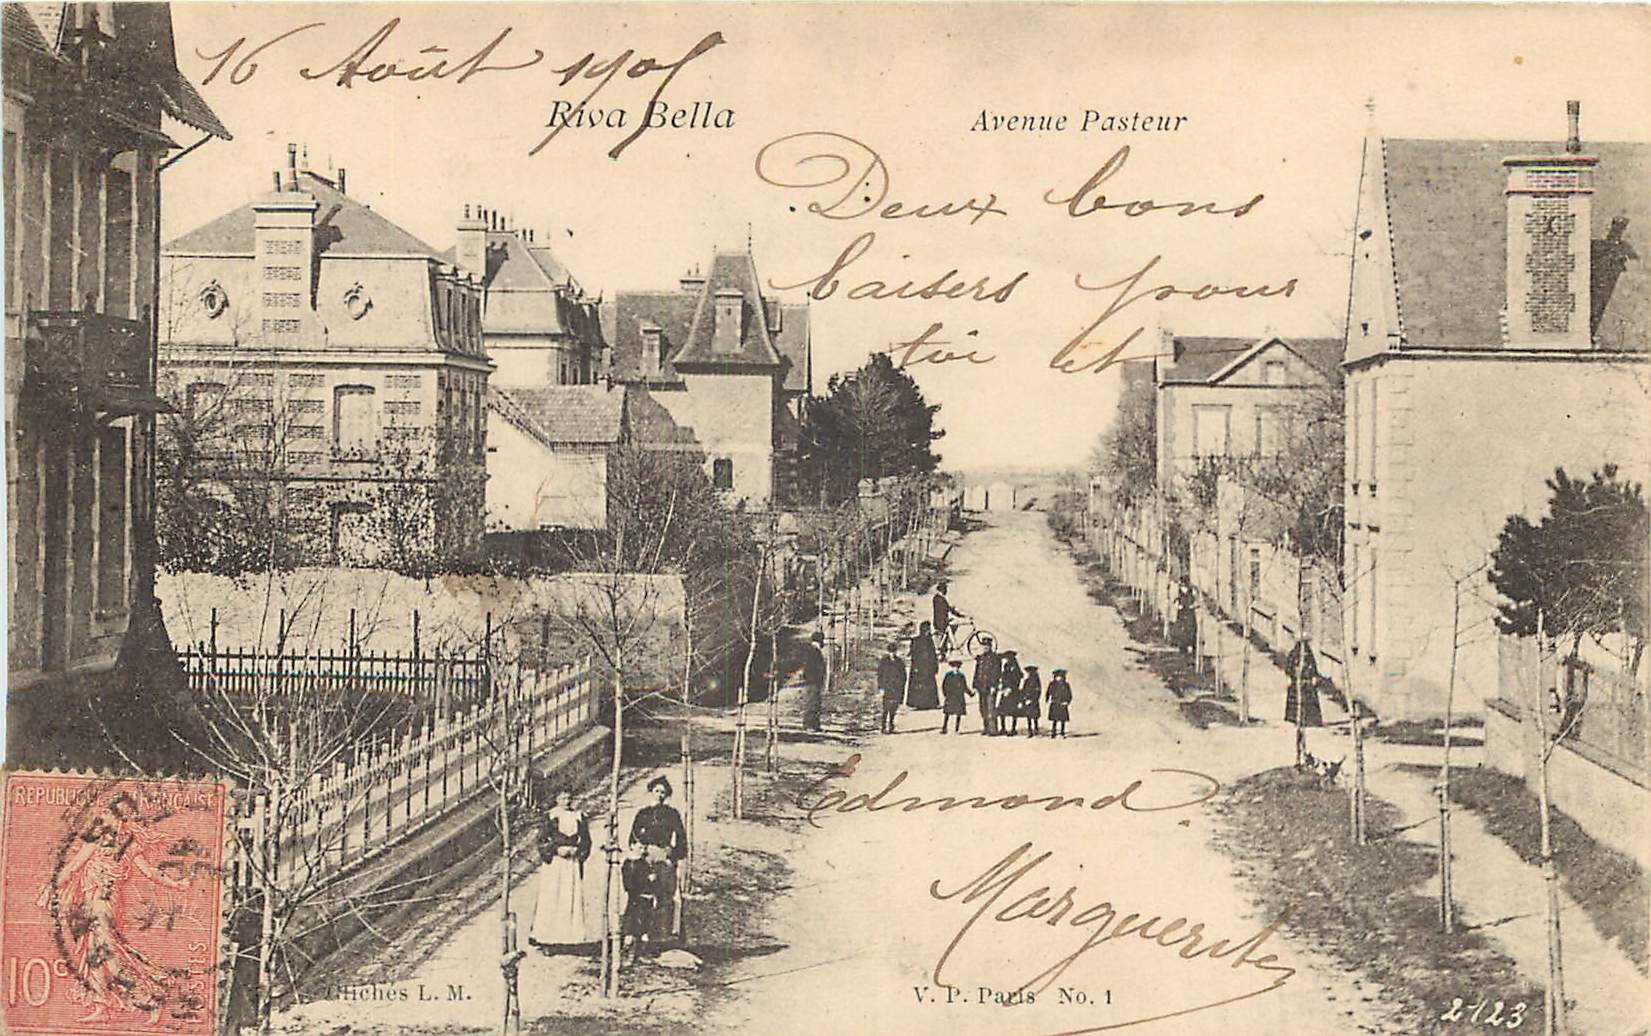 16 Août 1905
Riva Bella
Avenue Pasteur
Deux bons
baisers pour
toi et
Edmond
Marguerite
REPUBLIQUE FRANÇAISE
10c
POSTES
Clichés L. M.
V. P. Paris No. 1
2123